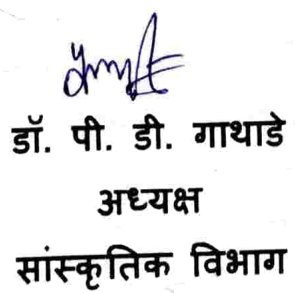 डॉ. पी. डी. गाथाडे
अध्यक्ष
सांस्कृतिक विभाग